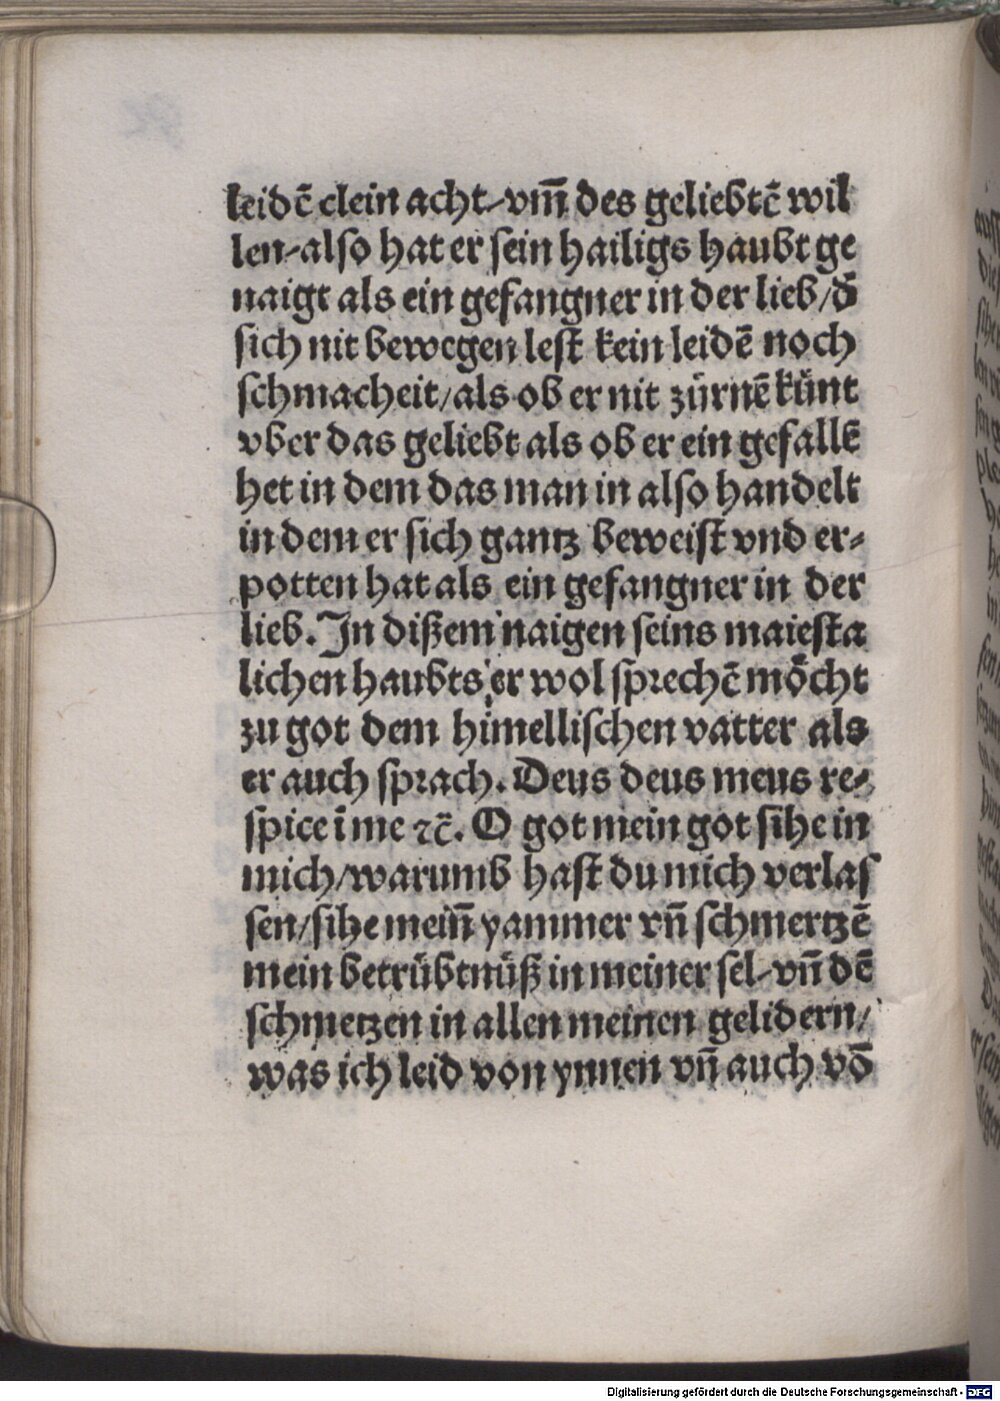 leidē clein acht/vm̄ des geliebtē wil
len/also hat er sein hailigs haubt ge
naigt als ein gefangner in der lieb/d̄
sich nit bewegen lest kein leidē noch
schmacheit/als ob er nit zürnē künt
vber das geliebt als ob er ein gefallē
het in dem das man in also handelt
in dem er sich gantz beweist vnd er⸗
potten hat als ein gefangner in der
lieb. In dißem naigen seins maiesta
lichen haubts er wol sprechē möcht
zu got dem himellischen vatter als
er auch sprach. Deus deus meus re⸗
spice ī me ⁊c̄. O got mein got sihe in
mich/warumb hast du mich verlas
sen/sihe mein̄ yammer vn̄ schmertzē
mein betrübtnüß in meiner sel/vn̄ dē
schmetzen in allen meinen gelidern/
was ich leid von ynnen vn̄ auch vō
Digitalisierung gefördert durch die Deutsche Forschungsgemeinschaft - DFG